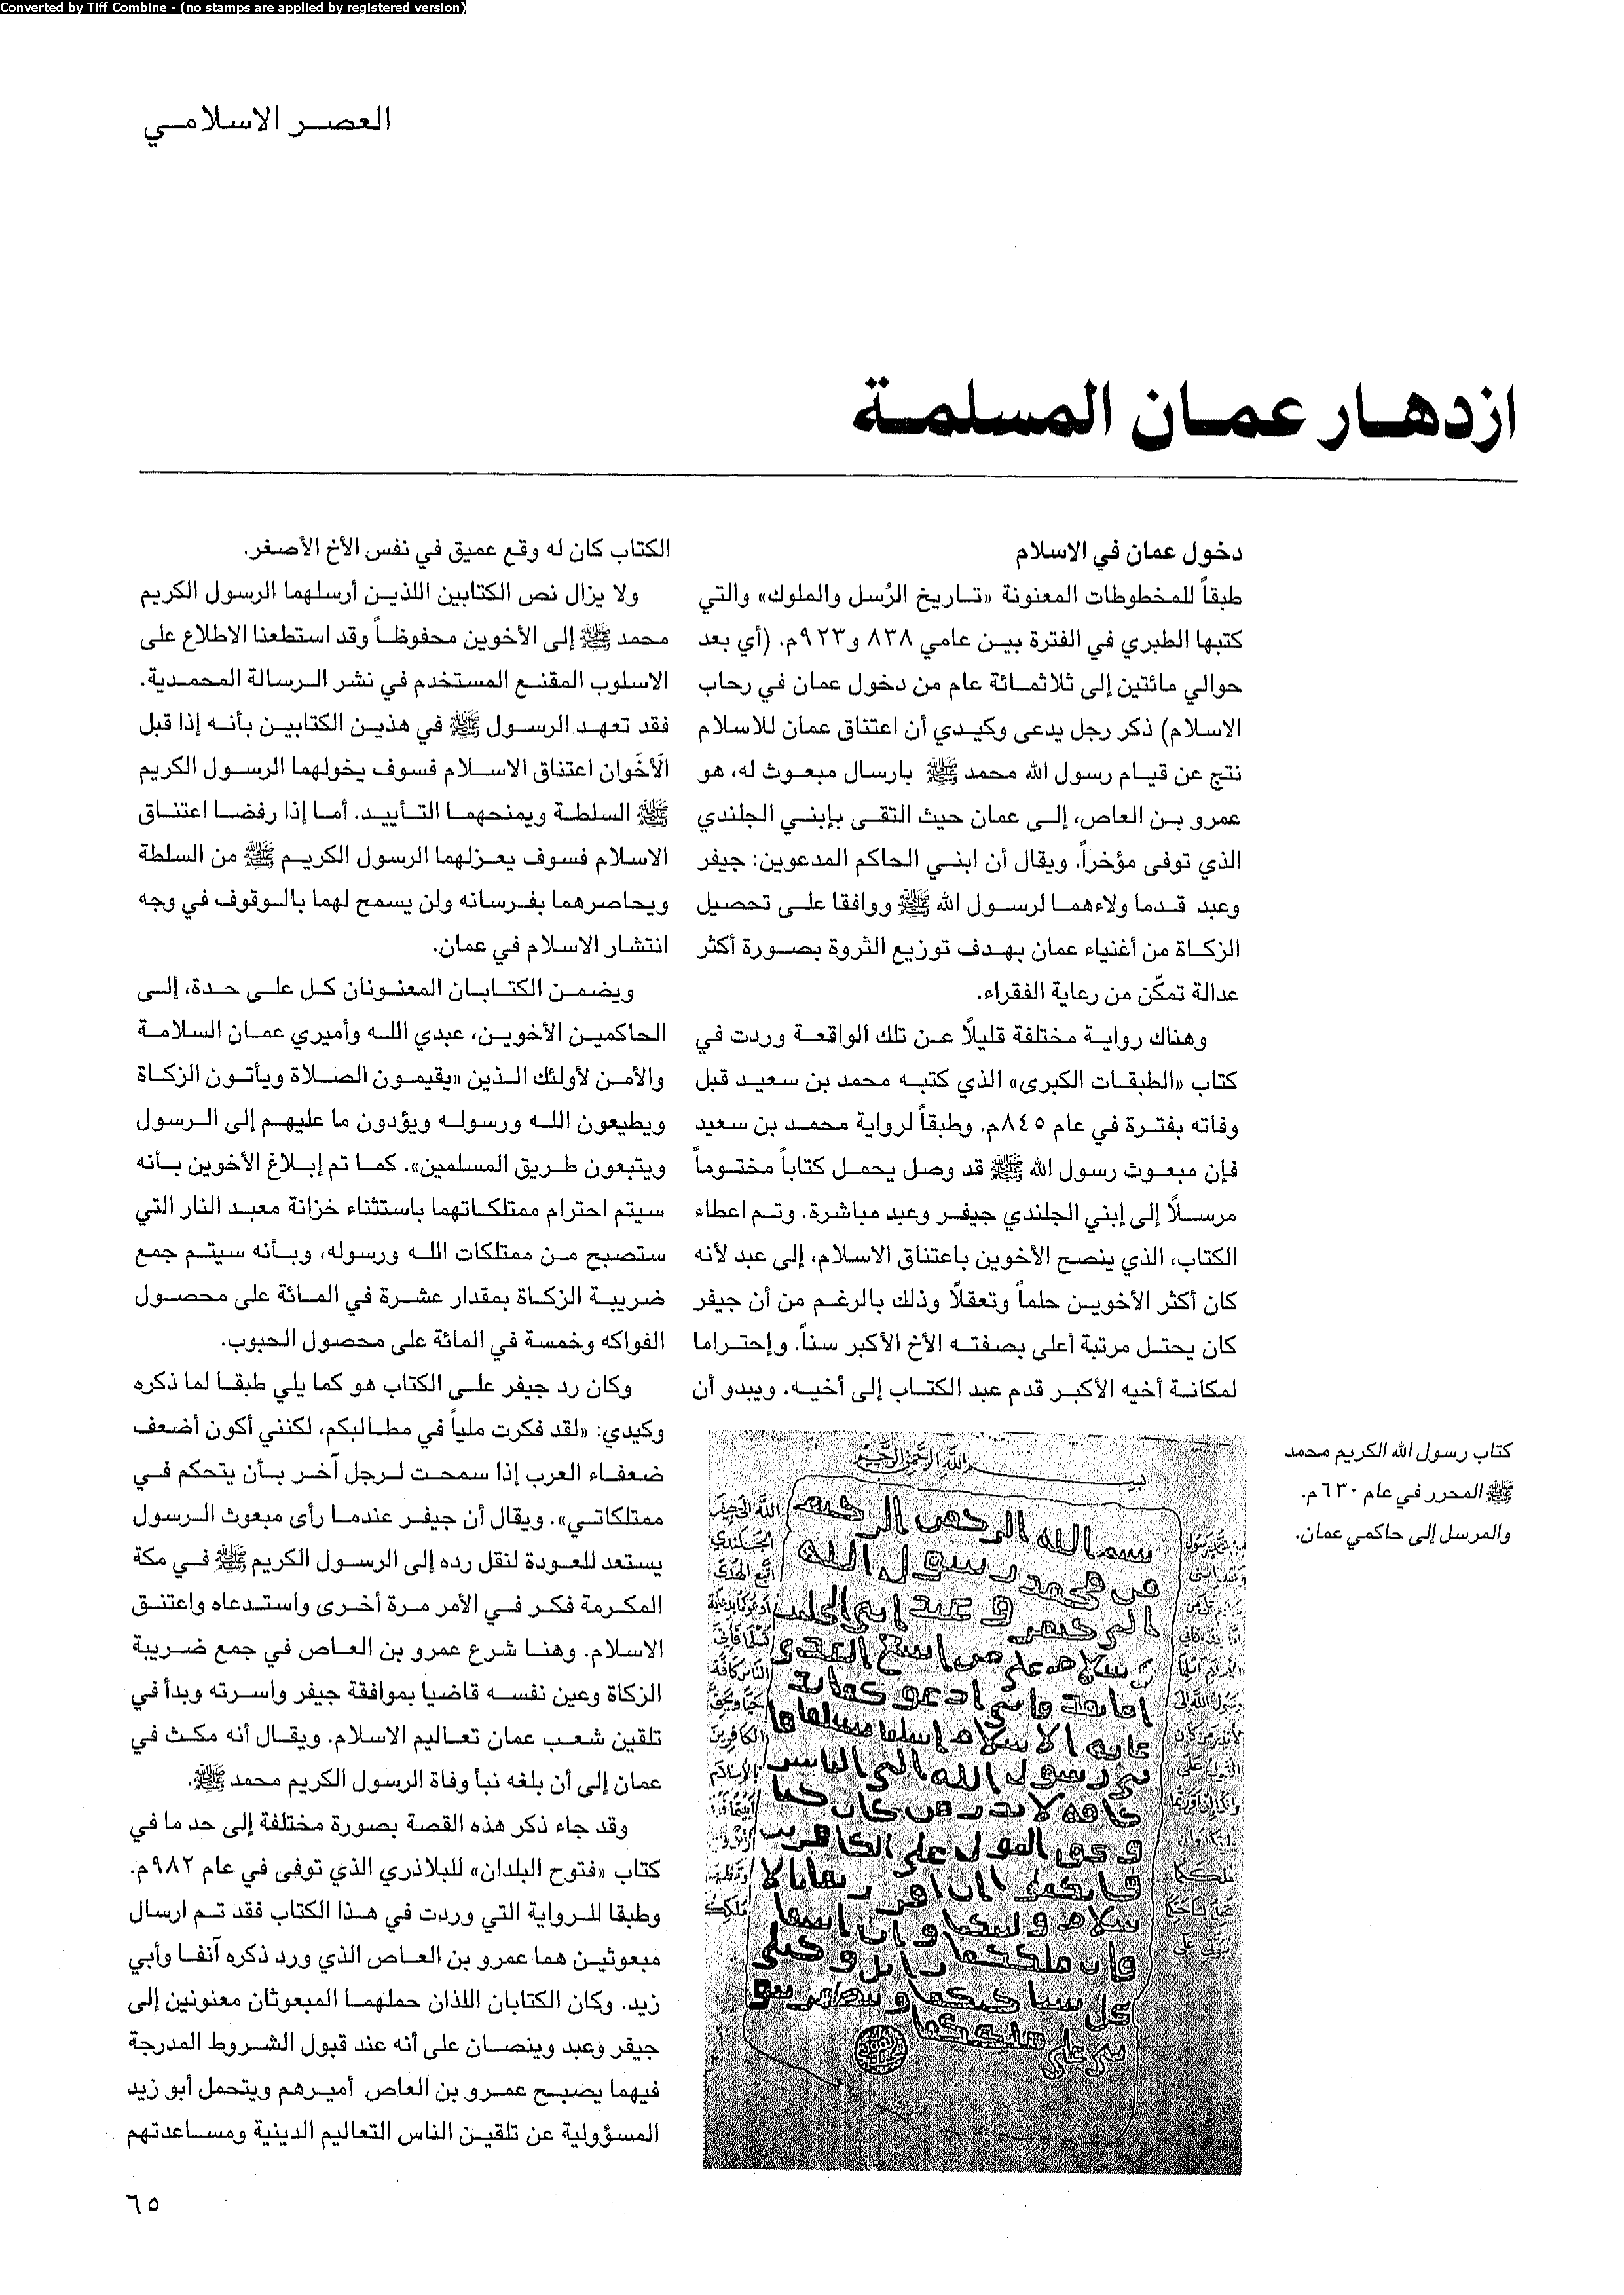 Converted by Tiff Combine - (no stamps are applied by registered version)
العصر الاسلامي
ازدهار عمان المسلمة
دخول عمان في الاسلام
طبقاً للمخطوطات المعنونة «تاريخ الرُسل والملوك» والتي
كتبها الطبري في الفترة بين عامي ٨٣٨ و٩٢٣م. (أي بعد
حوالي مائتين إلى ثلاثمائة عام من دخول عمان في رحاب
الاسلام) ذكر رجل يدعى وكيدي أن اعتناق عمان للاسلام
نتج عن قيام رسول الله محمد ﷺ بارسال مبعوث له، هو
عمرو بن العاص، إلى عمان حيث التقى بإبني الجلندي
الذي توفى مؤخراً. ويقال أن ابني الحاكم المدعوين: جيفر
وعبد قدما ولاءهما لرسول الله ﷺ ووافقا على تحصيل
الزكاة من أغنياء عمان بهدف توزيع الثروة بصورة أكثر
عدالة تمكّن من رعاية الفقراء.
وهناك رواية مختلفة قليلاً عن تلك الواقعة وردت في
كتاب «الطبقات الكبرى» الذي كتبه محمد بن سعيد قبل
وفاته بفترة في عام ٨٤٥م. وطبقاً لرواية محمد بن سعيد
فإن مبعوث رسول الله ﷺ قد وصل يحمل كتاباً مختوماً
مرسلاً إلى إبني الجلندي جيفر وعبد مباشرة. وتم اعطاء
الكتاب، الذي ينصح الأخوين باعتناق الاسلام، إلى عبد لأنه
كان أكثر الأخوين حلماً وتعقلاً وذلك بالرغم من أن جيفر
كان يحتل مرتبة أعلى بصفته الأخ الأكبر سناً. وإحتراما
لمكانة أخيه الأكبر قدم عبد الكتاب إلى أخيه. ويبدو أن
كتاب رسول الله الكريم محمد
ﷺ المحرر في عام ٦٣٠م.
والمرسل إلى حاكمي عمان.
الكتاب كان له وقع عميق في نفس الأخ الأصغر.
ولا يزال نص الكتابين اللذين أرسلهما الرسول الكريم
محمد ﷺ إلى الأخوين محفوظاً وقد استطعنا الاطلاع على
الاسلوب المقنع المستخدم في نشر الرسالة المحمدية.
فقد تعهد الرسول ﷺ في هذين الكتابين بأنه إذا قبل
الأخَوان اعتناق الاسلام فسوف يخولهما الرسول الكريم
ﷺ السلطة ويمنحهما التأييد. أما إذا رفضا اعتناق
الاسلام فسوف يعزلهما الرسول الكريم ﷺ من السلطة
ويحاصرهما بفرسانه ولن يسمح لهما بالوقوف في وجه
انتشار الاسلام في عمان.
ويضمن الكتابان المعنونان كل على حدة، إلى
الحاكمين الأخوين، عبدي الله وأميري عمان السلامة
والأمن لأولئك الذين «يقيمون الصلاة ويأتون الزكاة
ويطيعون الله ورسوله ويؤدون ما عليهم إلى الرسول
ويتبعون طريق المسلمين». كما تم إبلاغ الأخوين بأنه
سيتم احترام ممتلكاتهما باستثناء خزانة معبد النار التي
ستصبح من ممتلكات الله ورسوله، وبأنه سيتم جمع
ضريبة الزكاة بمقدار عشرة في المائة على محصول
الفواكه وخمسة في المائة على محصول الحبوب.
وكان رد جيفر على الكتاب هو كما يلي طبقا لما ذكره
وكيدي: «لقد فكرت ملياً في مطالبكم، لكنني أكون أضعف
ضعفاء العرب إذا سمحت لرجل آخر بأن يتحكم في
ممتلكاتي». ويقال أن جيفر عندما رأى مبعوث الرسول
يستعد للعودة لنقل رده إلى الرسول الكريم ﷺ في مكة
المكرمة فكر في الأمر مرة أخرى واستدعاه واعتنق
الاسلام. وهنا شرع عمرو بن العاص في جمع ضريبة
الزكاة وعين نفسه قاضيا بموافقة جيفر واسرته وبدأ في
تلقين شعب عمان تعاليم الاسلام. ويقال أنه مكث في
عمان إلى أن بلغه نبأ وفاة الرسول الكريم محمد ﷺ.
وقد جاء ذكر هذه القصة بصورة مختلفة إلى حد ما في
كتاب «فتوح البلدان» للبلاذري الذي توفى في عام ٩٨٢م.
وطبقا للرواية التي وردت في هذا الكتاب فقد تم ارسال
مبعوثين هما عمرو بن العاص الذي ورد ذكره آنفا وأبي
زيد. وكان الكتابان اللذان حملهما المبعوثان معنونين إلى
جيفر وعبد وينصان على أنه عند قبول الشروط المدرجة
فيهما يصبح عمرو بن العاص أميرهم ويتحمل أبو زيد
المسؤولية عن تلقين الناس التعاليم الدينية ومساعدتهم
٦٥